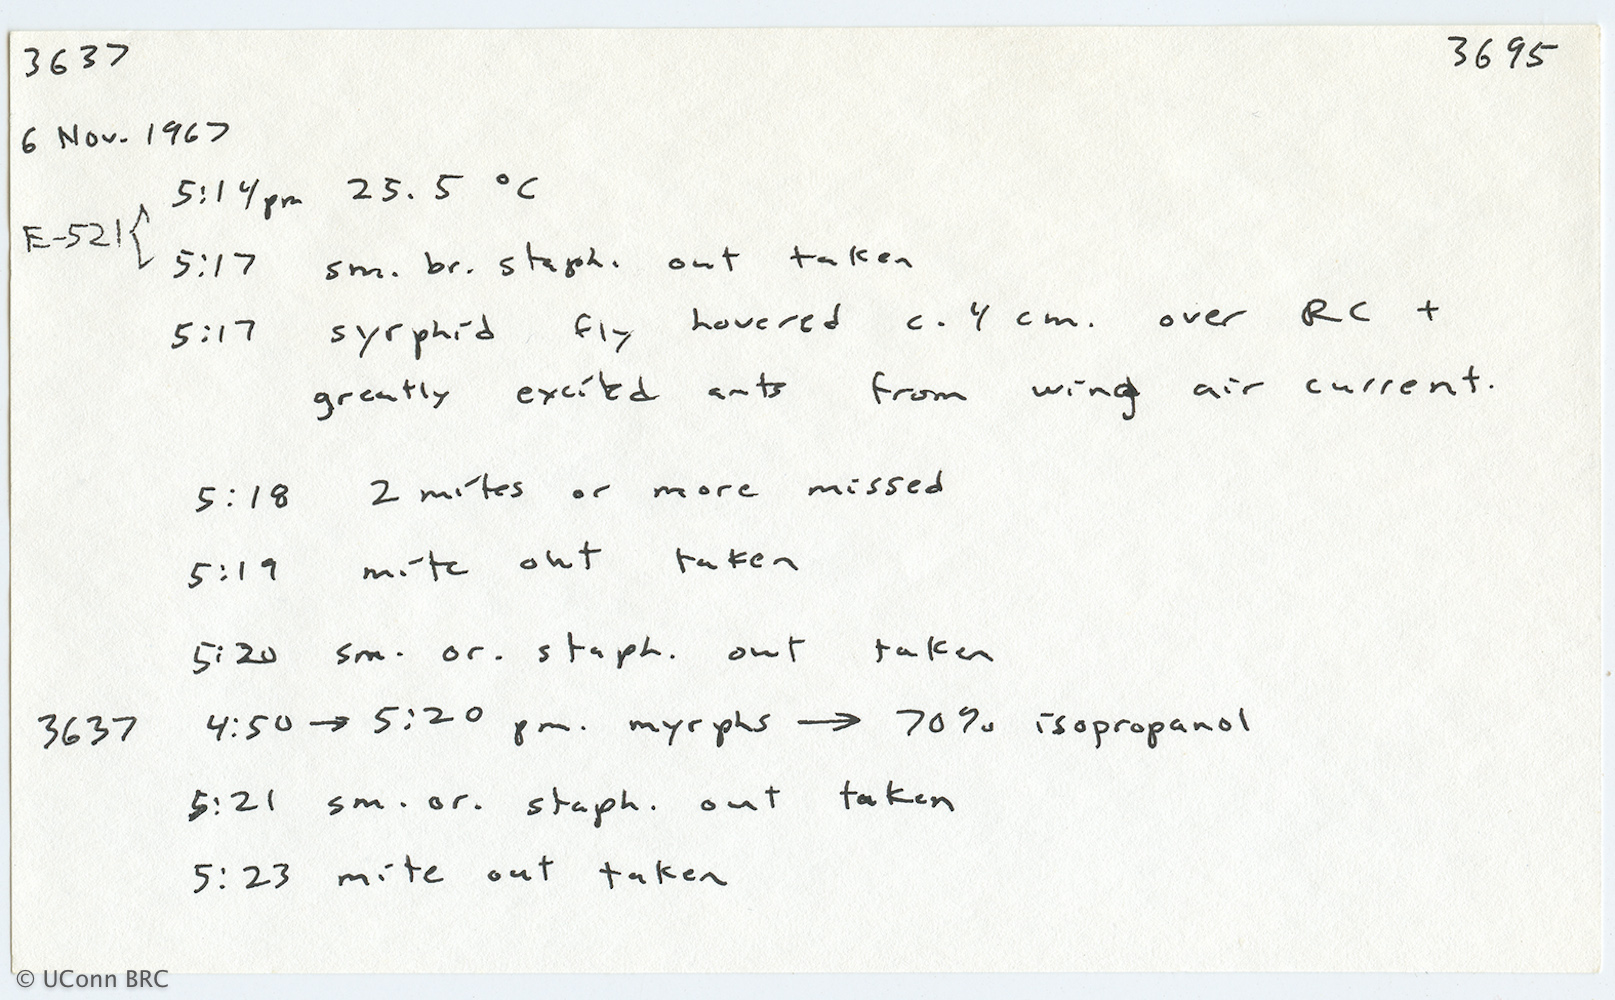 3637 3695
6 Nov. 1967
5:14 pm 25.5 °C
E-521 {
5:17 sm. br. staph. out taken
5:17 syrphid fly hovered c. 4 cm. over RC +
greatly excited ants from wing air current.
5:18 2 mites or more missed
5:19 mite out taken
5:20 sm. or. staph. out taken
3637 4:50 → 5:20 pm. myrphs → 70% isopropanol
5:21 sm. or. staph. out taken
5:23 mite out taken
© UConn BRC